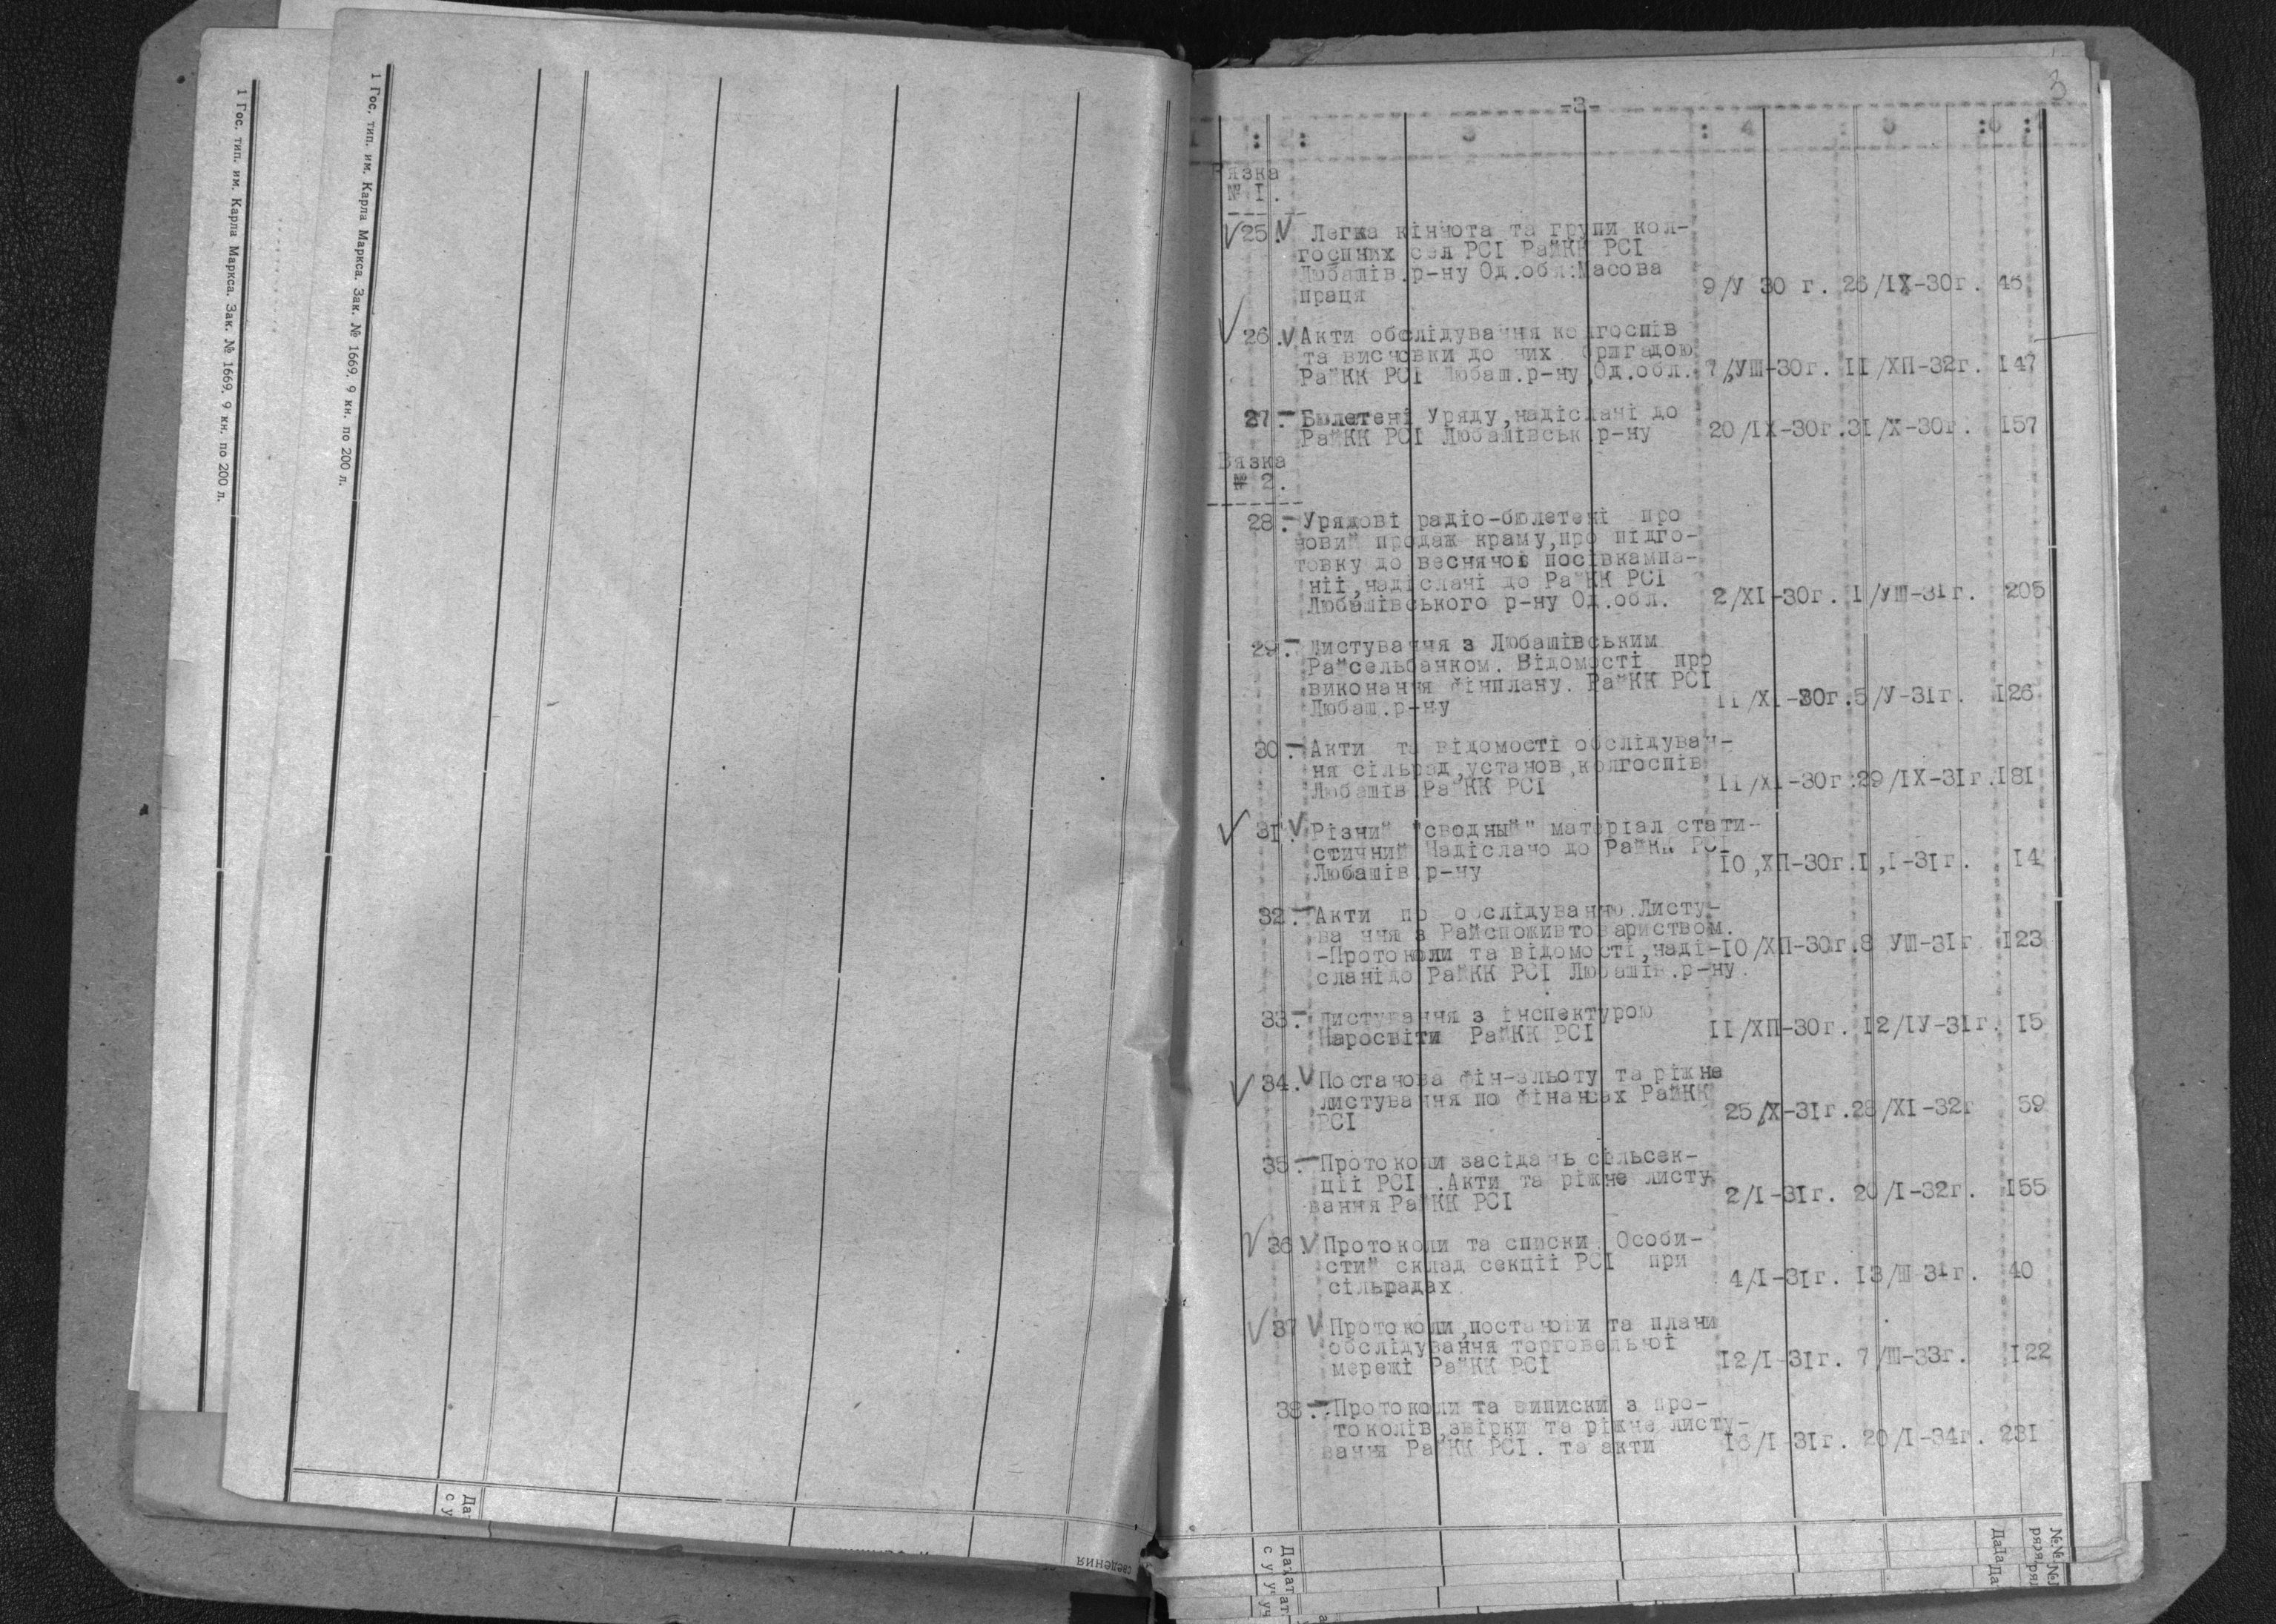 1 Гос. тип. им. Карла Маркса. Зак. № 1669. 9 кн. по 200 л.
1 Гос. тип. им. Карла Маркса. Зак. № 1669. 9 кн. по 200 л.
Да
с у
сведения
3
-3-
1 : 2 : 3 : 4 : 5 : 6 :
Вязка
№ I.
25. Легка кіннота та групи кол-
госпних сел РСІ РайКК РСІ
Любашів.р-ну Од.обл.:Масова
праця 9/У 30 г. 26/IX-30г. 45
26. Акти обслідування колгоспів
та висновки до них бригадою
РайКК РСІ Любаш.р-ну,Од.обл. 7/УШ-30г. II/ХП-32г. I47
27.- Бюлетені Уряду,надіслані до
РайКК РСІ Любашівськ.р-ну 20/IX-30г.3I/X-30г. I57
Вязка
№ 2.
28.- Урядові радіо-бюлетені про
новий продаж краму,про підго-
товку до весняної посівкампа-
нії,надіслані до РайКК РСІ
Любашівського р-ну Од.обл. 2/XI-30г. I/УШ-3Iг. 205
29.- Листування з Любашівським
Райсельбанком. Відомості про
виконання фінплану. РайКК РСІ
Любаш.р-ну II/XI-30г.5/У-3Iг. I26
30.- Акти та відомості обслідуван-
ня сільрад,установ,колгоспів
Любашів.РайКК РСІ II/XI-30г.29/IX-3Iг.I8I
3I. Різний "сводный" матеріал стати-
стичний Надіслано до РайКК РСІ
Любашів.р-ну IO,ХП-30г.I,I-3Iг. I4
32.- Акти по обслідуванню.Листу-
ва ння з Райспоживтовариством.
-Протоколи та відомості,наді- IO/ХП-30г.8 УШ-3Iг I23
сланідо РайКК РСІ Любашів.р-ну.
33.- Листування з інспектурою
Наросвіти РайКК РСІ II/ХП-30г. I2/IУ-3Iг. I5
34. Постанова фін-зльоту та ріжне
листування по фінансах РайКК
РСІ 25/X-3Iг.28/XI-32г 59
35.- Протоколи засідань сільсек-
ції РСІ .Акти та ріжне листу-
вання РайКК РСІ 2/I-3Iг. 20/I-32г. I55
36. Протоколи та списки Особи-
стий склад секції РСІ при
сільрадах 4/I-3Iг. I3/Ш-3Iг. 40
37 Протоколи,постанови та плани
обслідування торговельної
мережі РайКК РСІ I2/I-3Iг. 7/Ш-33г. I22
38.- Протоколи та виписки з про-
токолів,звірки та ріжне листу-
вання РайКК РСІ. та акти I6/I-3Iг. 20/I-34г. 23I
Да
с у
№№